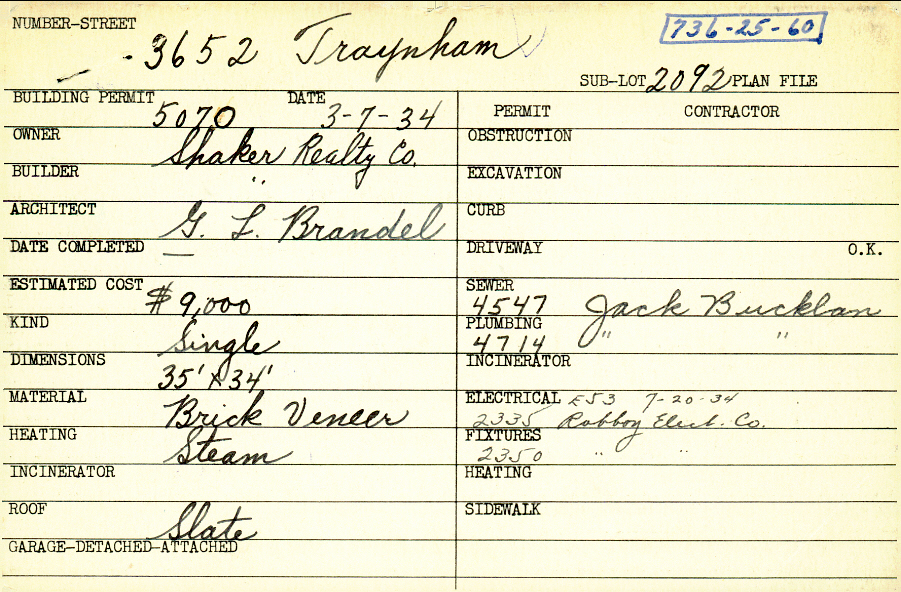 NUMBER-STREET
3652 Traynham
736-25-60
SUB-LOT 2092 PLAN FILE
BUILDING PERMIT 5070 DATE 3-7-34
OWNER Shaker Realty Co.
BUILDER "
ARCHITECT G. L. Brandel
DATE COMPLETED —
ESTIMATED COST $9,000
KIND Single
DIMENSIONS 35' x 34'
MATERIAL Brick Veneer
HEATING Steam
INCINERATOR
ROOF Slate
GARAGE-DETACHED-ATTACHED
PERMIT CONTRACTOR
OBSTRUCTION
EXCAVATION
CURB
DRIVEWAY O.K.
SEWER
4547 Jack Bucklan
PLUMBING
4714 " "
INCINERATOR
ELECTRICAL E53 7-20-34
2335 Robboy Elect. Co.
FIXTURES
2350 " "
HEATING
SIDEWALK